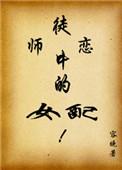 师徒恋
中
的
女配
!
容 著